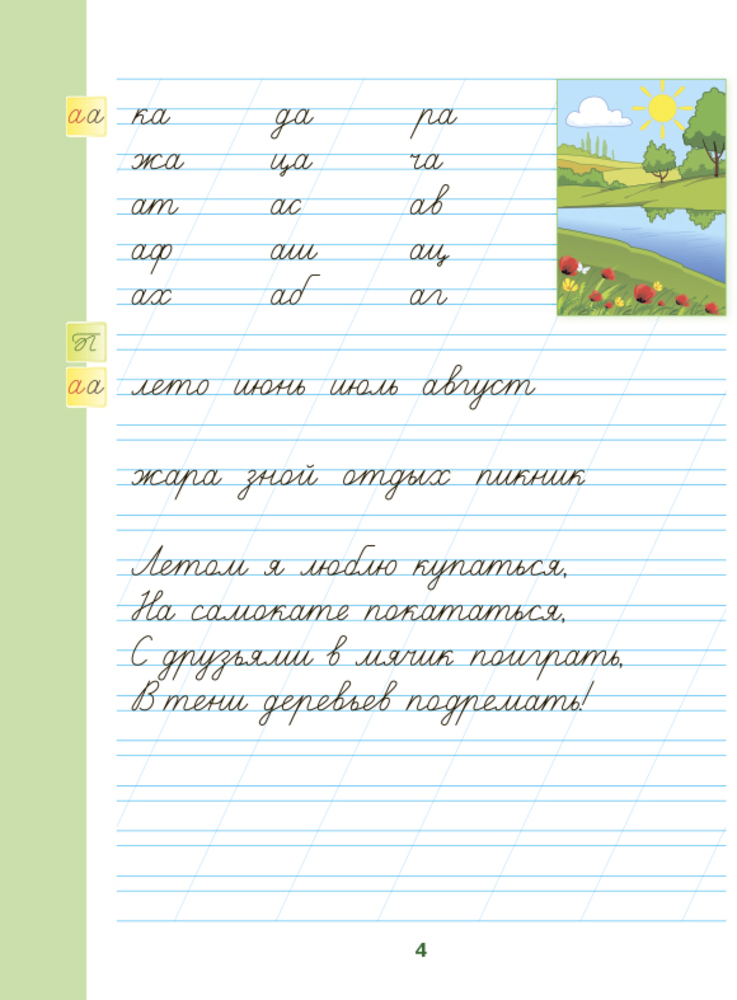 аа ка да ра
жа ца ча
ат ас ав
аф аш ац
ах аб аг
П
аа лето июнь июль август
жара зной отдых пикник
Летом я люблю купаться,
На самокате покататься,
С друзьями в мячик поиграть,
В тени деревьев подремать!
4